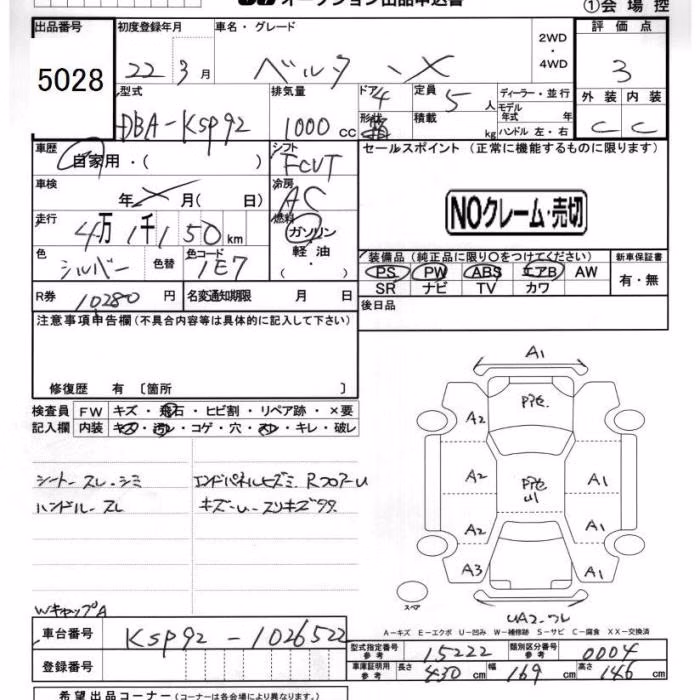 オークション出品申込書
①会場控
出品番号
5028
初度登録年月
22 3月
車名・グレード
ベルタ X
2WD
・
4WD
評価点
3
外装 内装
C C
型式
DBA-KSP92
排気量
1000 cc
ドア
4
形状
定員
5 人
積載
kg
ディーラー・並行
モデル年式 年
ハンドル 左・右
車歴
自家用・( )
シフト
FCVT
セールスポイント (正常に機能するものに限ります)
NOクレーム・売切
車検
年 月( 日)
冷房
AC
走行
4万 1千150 km
燃料
ガソリン
軽油
( ・ )
色
シルバー
色替
色コード
1E7
装備品 (純正品に限り○をつけてください)
PS PW ABS エアB AW
SR ナビ TV カワ
新車保証書
有・無
R券 10280 円
名変通知期限 月 日
後日品
注意事項申告欄 (不具合内容等は具体的に記入して下さい)
修復歴 有 〔箇所 〕
検査員
記入欄
FW キズ・飛石・ヒビ割・リペア跡・×要
内装 キズ・汚レ・コゲ・穴・スレ・キレ・破レ
シート スレ・シミ
ハンドル スレ
エンドパネルヒズミ Rフロアー U
キズ・U
WキャップA
A1
A2
A2
A2
A3
A1
A1
A1
スペア
UA2
A-キズ E-エクボ U-凹み W-補修跡 S-サビ C-腐食 XX-交換済
車台番号 KSP92-1026522
登録番号
型式指定番号
参考
15222
類別区分番号
参考
0004
車庫証明用
参考
長さ 430 cm 幅 169 cm 高さ 146 cm
希望出品コーナー (コーナーは各会場により異なります。)